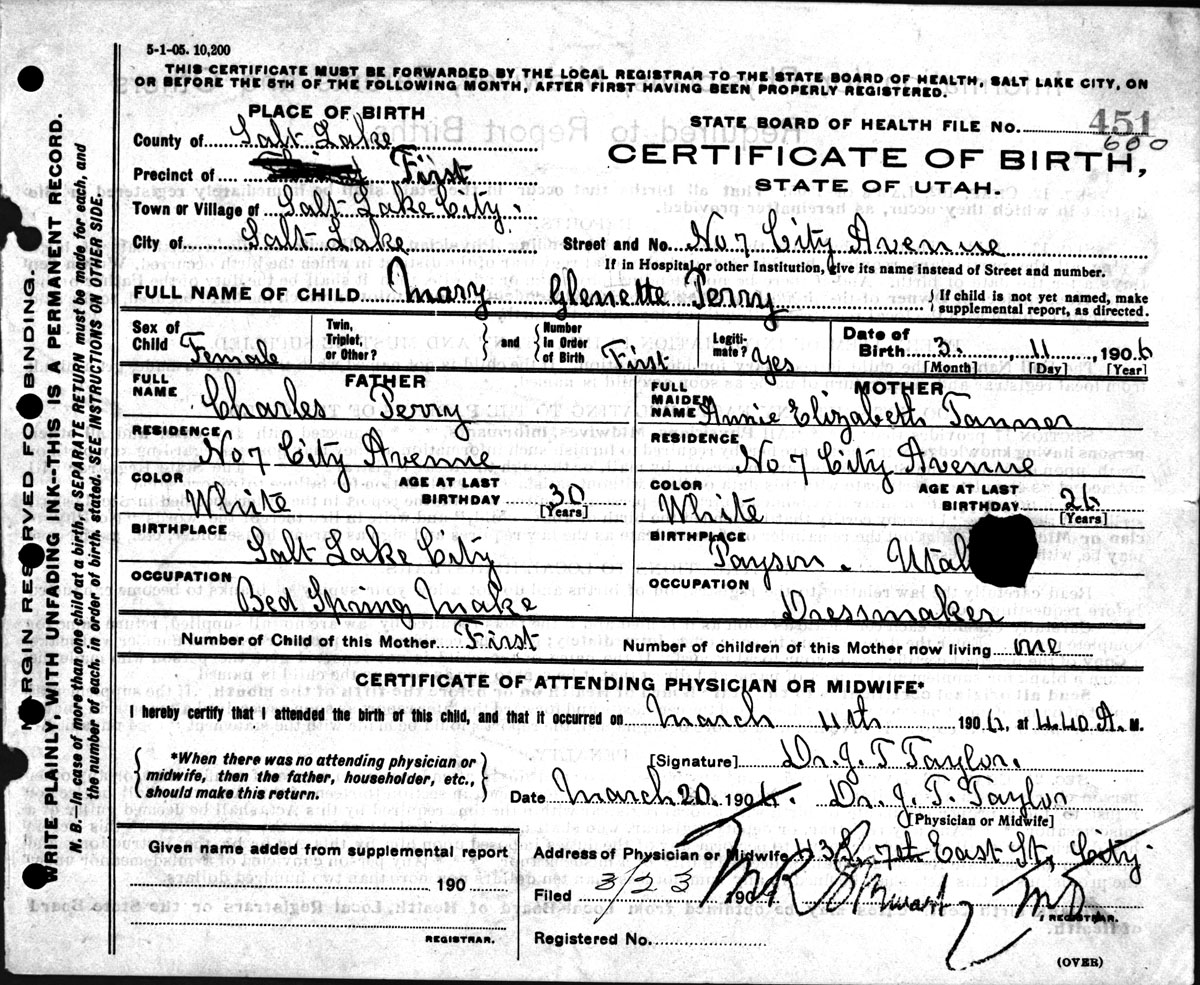 5-1-05. 10,200
THIS CERTIFICATE MUST BE FORWARDED BY THE LOCAL REGISTRAR TO THE STATE BOARD OF HEALTH, SALT LAKE CITY, ON
OR BEFORE THE 5TH OF THE FOLLOWING MONTH, AFTER FIRST HAVING BEEN PROPERLY REGISTERED.
PLACE OF BIRTH
County of Salt Lake
Precinct of First
Town or Village of Salt Lake City.
City of Salt Lake
STATE BOARD OF HEALTH FILE No. 451
600
CERTIFICATE OF BIRTH,
STATE OF UTAH.
Street and No. No 7 City Avenue
If in Hospital or other Institution, give its name instead of Street and number.
FULL NAME OF CHILD Mary Glenette Perry
{ If child is not yet named, make
supplemental report, as directed.
Sex of Child Female
Twin, Triplet, or Other?
and
Number in Order of Birth First
Legiti- mate? Yes
Date of Birth 3. 11 1906
[Month] [Day] [Year]
FATHER
FULL NAME Charles Perry
RESIDENCE
No 7 City Avenue
COLOR White
AGE AT LAST BIRTHDAY 30
[Years]
BIRTHPLACE
Salt Lake City
OCCUPATION
Bed Spring Make
MOTHER
FULL MAIDEN NAME Annie Elizabeth Tanner
RESIDENCE
No 7 City Avenue
COLOR White
AGE AT LAST BIRTHDAY 26
[Years]
BIRTHPLACE
Payson. Utah
OCCUPATION
Dressmaker
Number of Child of this Mother First
Number of children of this Mother now living one
CERTIFICATE OF ATTENDING PHYSICIAN OR MIDWIFE*
I hereby certify that I attended the birth of this child, and that it occurred on March 11th 1906, at 4 40 A. M.
{ *When there was no attending physician or
midwife, then the father, householder, etc.,
should make this return. }
[Signature] Dr. J. T. Taylor.
Date March 20. 1906. Dr. J. T. Taylor
[Physician or Midwife]
Given name added from supplemental report
190
REGISTRAR.
Address of Physician or Midwife 7th East St, City.
Filed 3/23 190
M D
REGISTRAR.
Registered No.
(OVER)
MARGIN RESERVED FOR BINDING.
WRITE PLAINLY, WITH UNFADING INK--THIS IS A PERMANENT RECORD.
N. B.—In case of more than one child at a birth, a SEPARATE RETURN must be made for each, and
the number of each, in order of birth, stated. SEE INSTRUCTIONS ON OTHER SIDE.